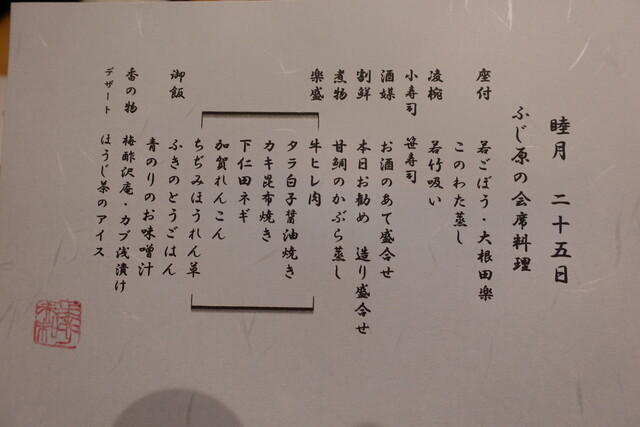 睦月　二十五日
ふじ原の会席料理
座付　若ごぼう・大根田楽
このわた蒸し
凌椀　若竹吸い
小寿司　笹寿司
酒媒　お酒のあて盛合せ
割鮮　本日お勧め　造り盛合せ
煮物　甘鯛のかぶら蒸し
楽盛　牛ヒレ肉
タラ白子醤油焼き
カキ昆布焼き
下仁田ネギ
加賀れんこん
ちぢみほうれん草
御飯　ふきのとうごはん
青のりのお味噌汁
香の物　梅酢沢庵・カブ浅漬け
デザート　ほうじ茶のアイス